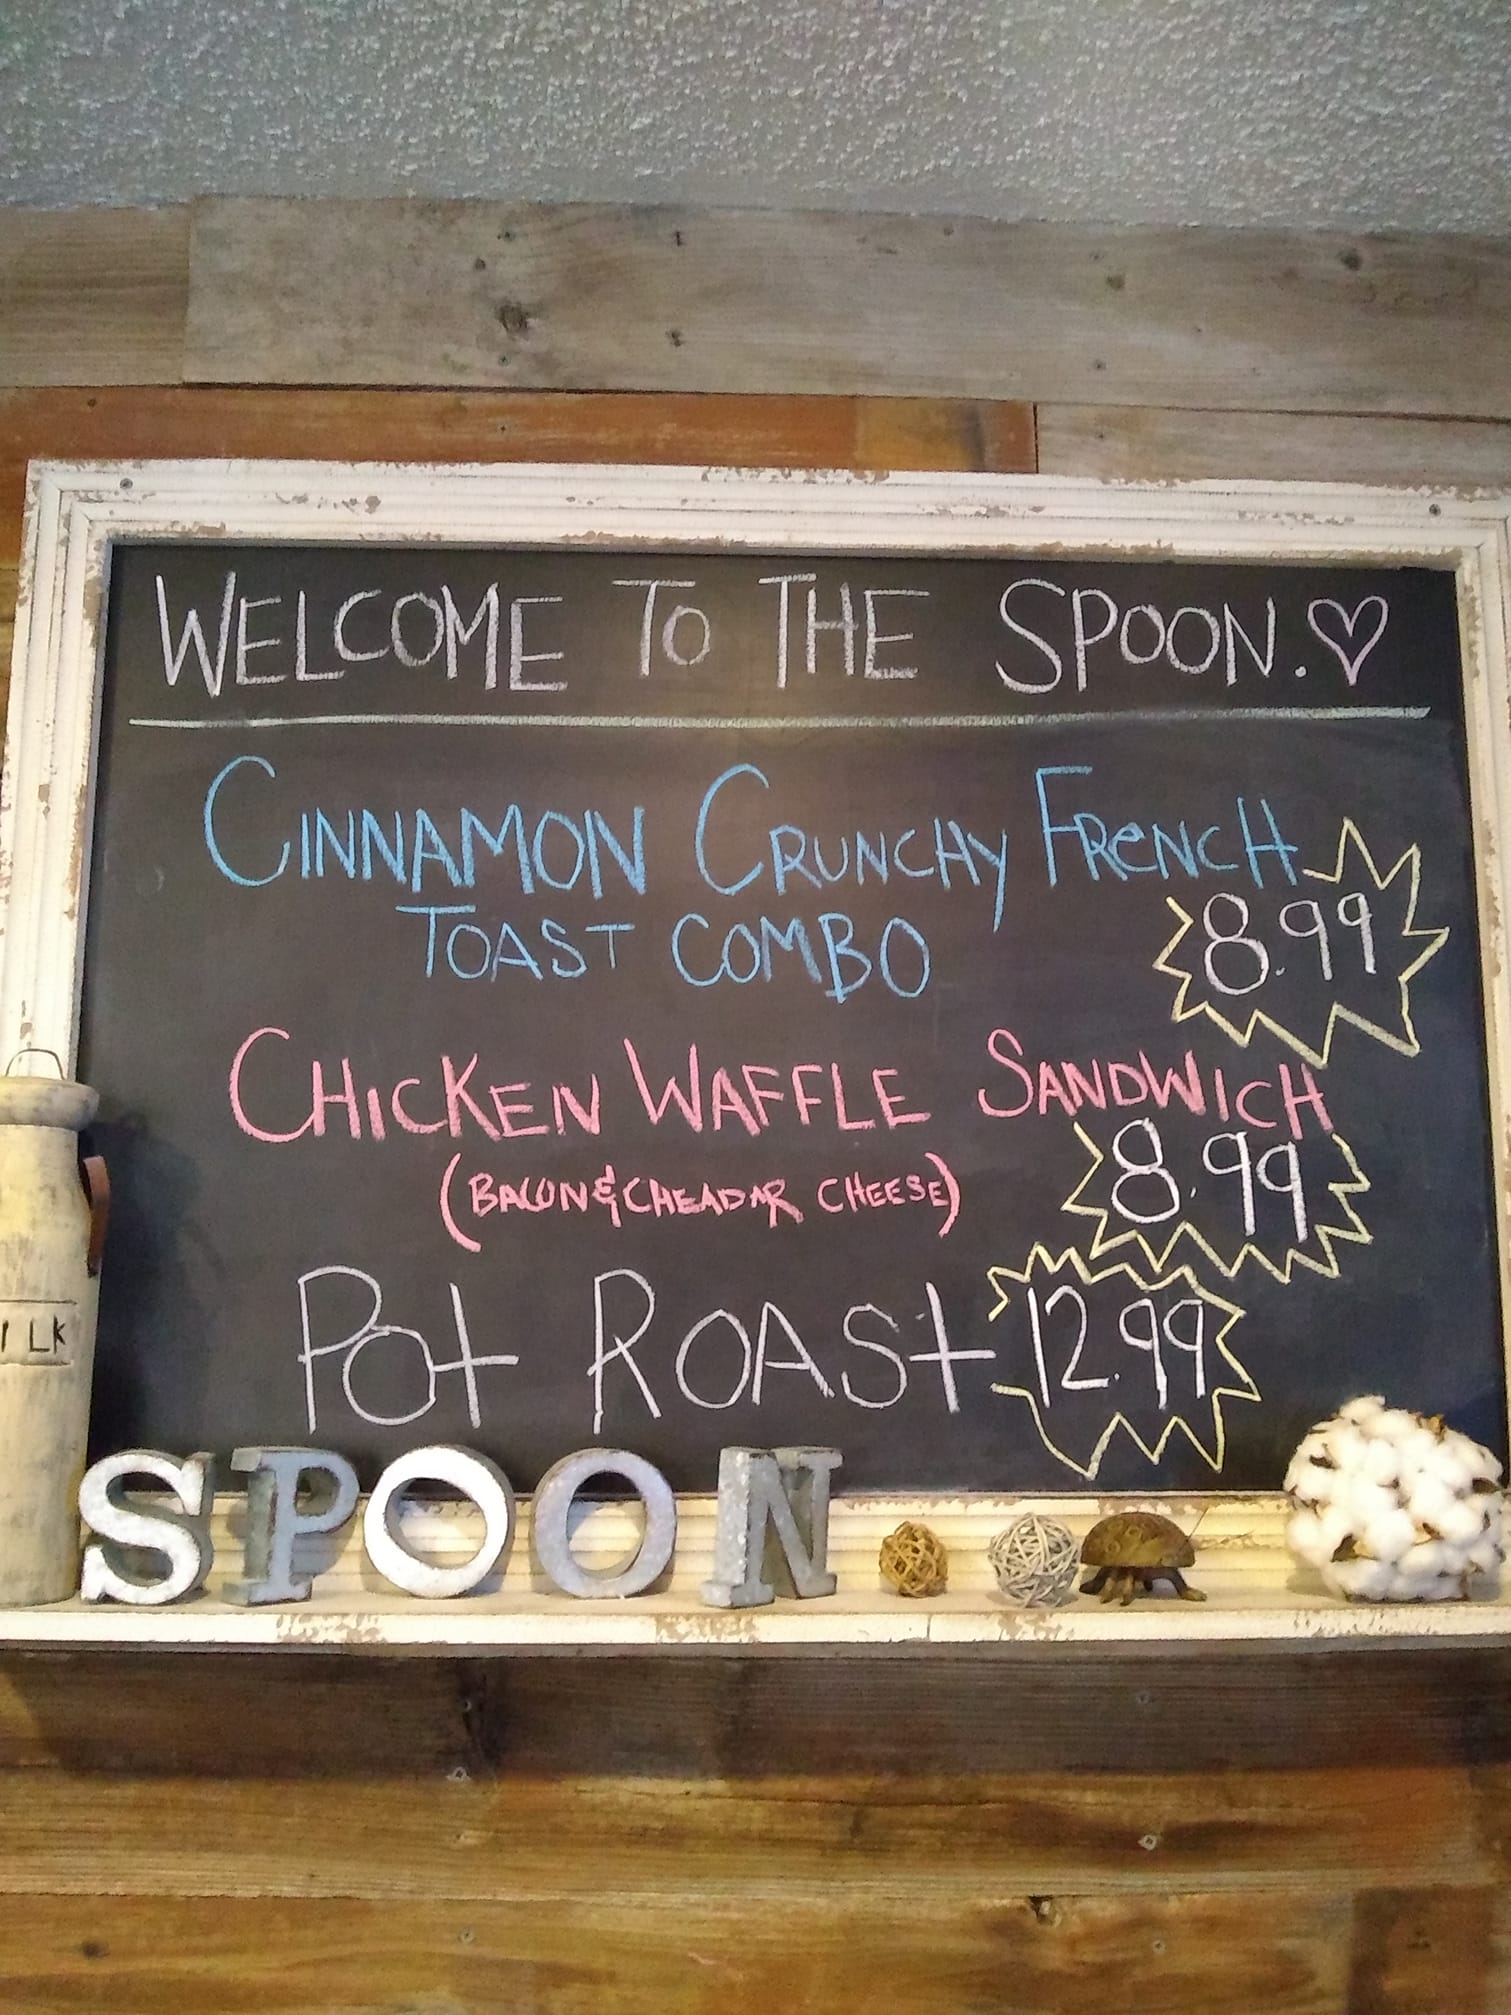 WELCOME TO THE SPOON. ♡
CINNAMON CRUNCHY FRENCH
TOAST COMBO
8.99
CHICKEN WAFFLE SANDWICH
(BACON & CHEADAR CHEESE)
8.99
POT ROAST 12.99
ILK
SPOON